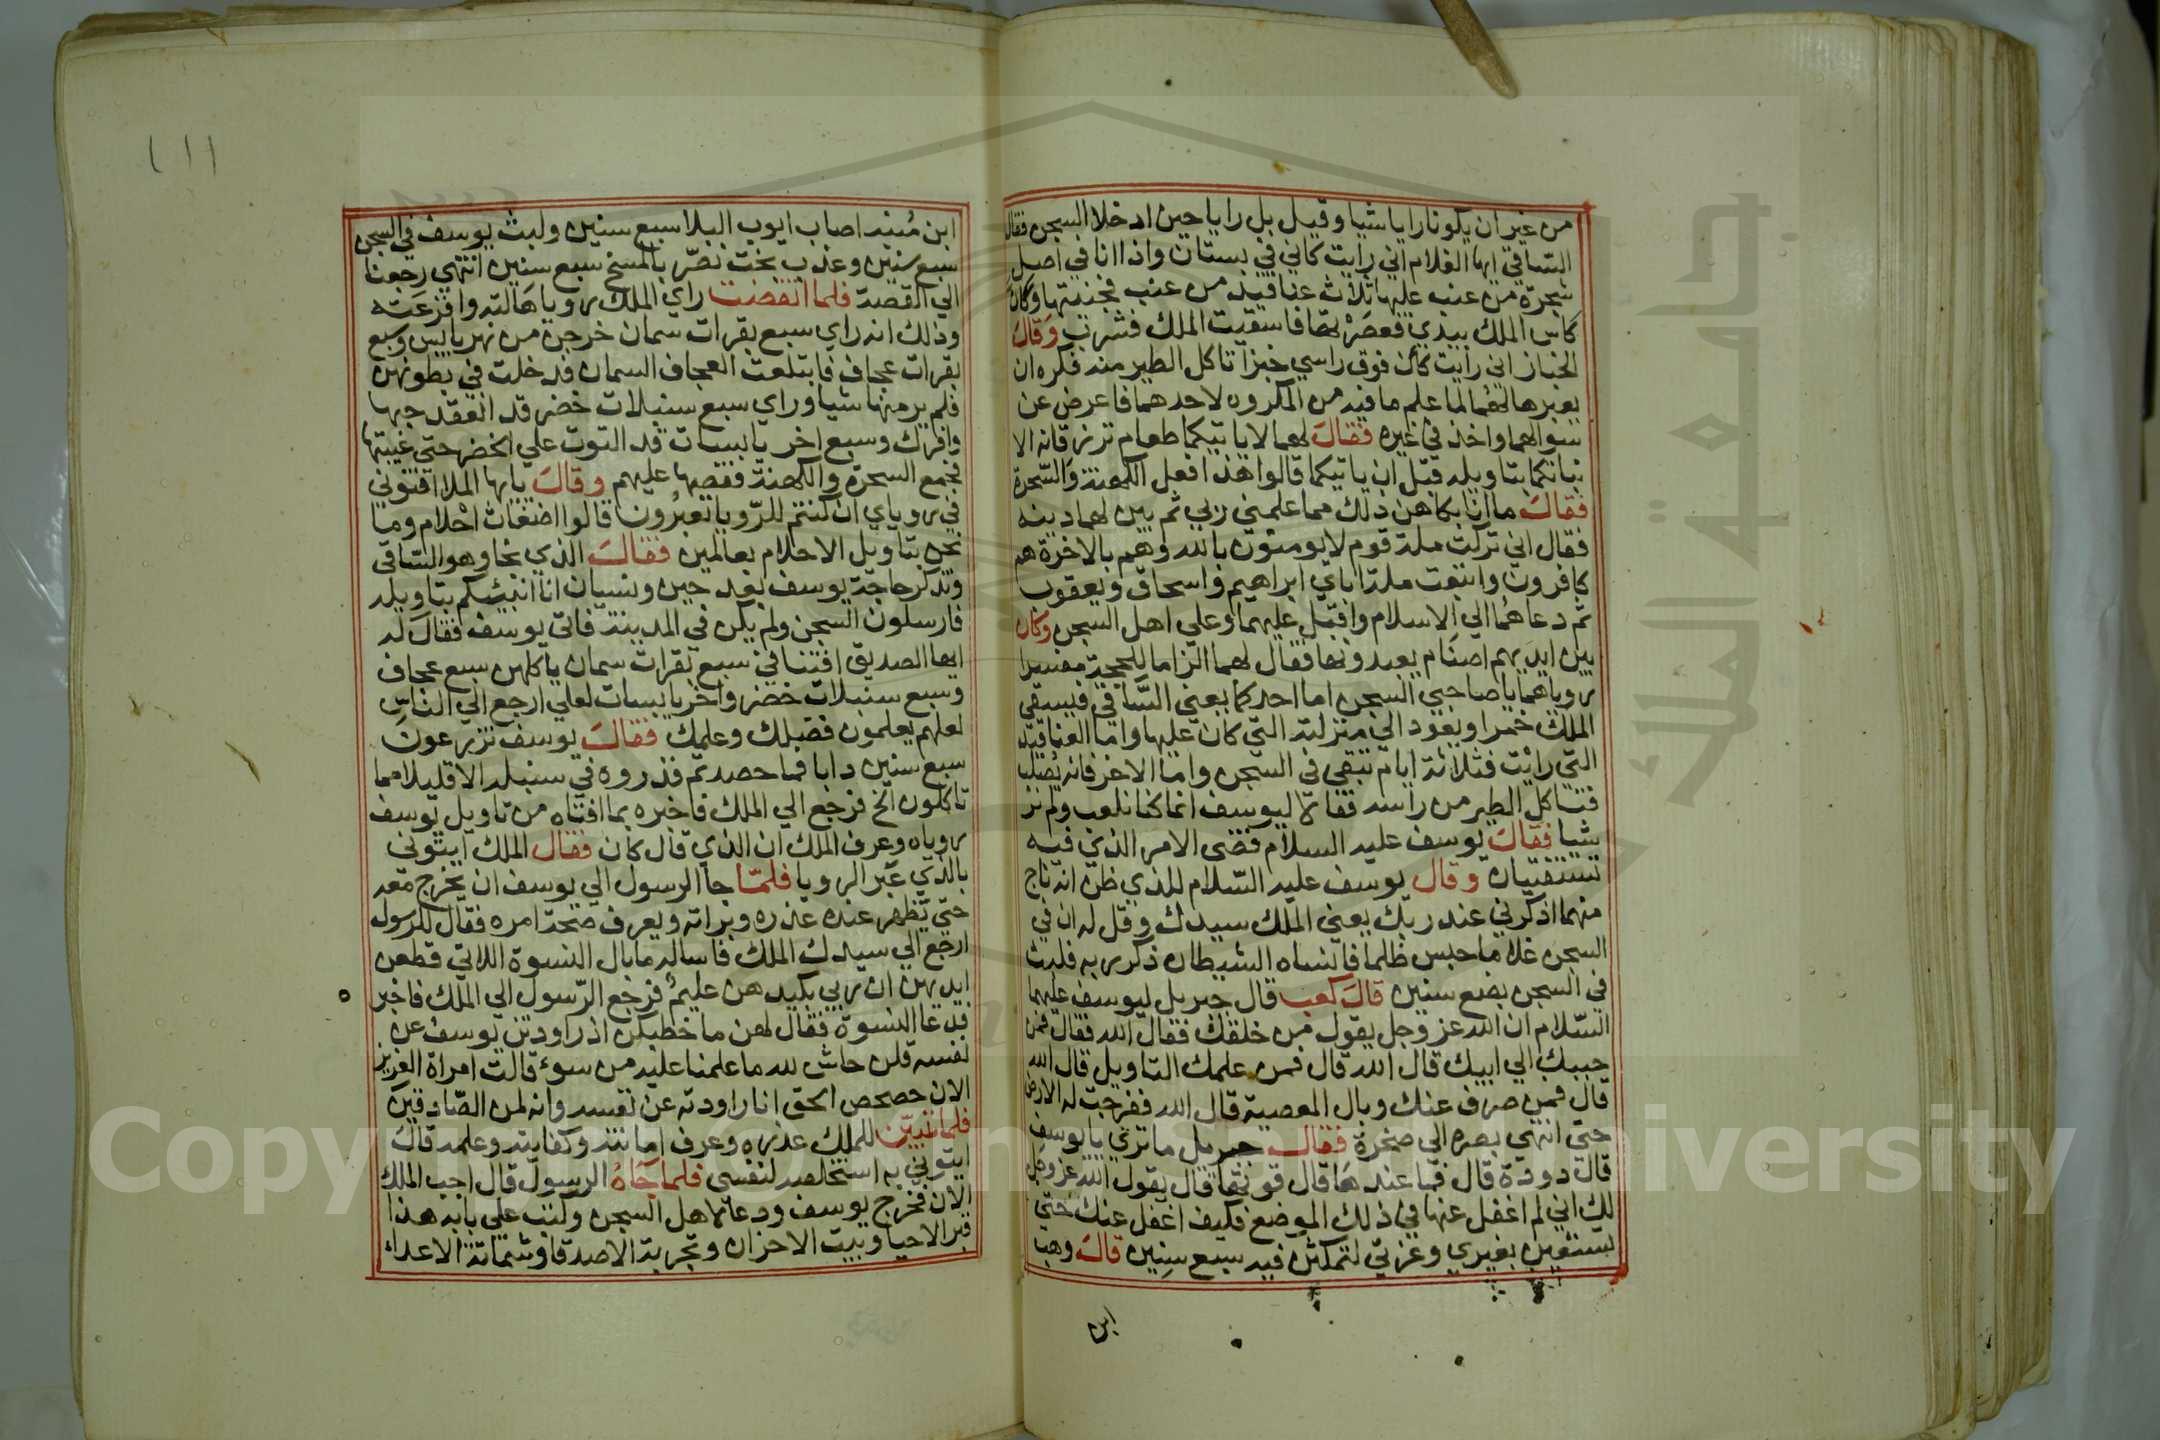 من غير ان يكونا رايا شيا وقيل بل رايا حين ادخلا السجن فقال
الساقي ايها الغلام اني رايت كاني في بستان واذا انا في اصل
شجرة من عنب عليها ثلاث عناقيد من عنب فجنيتها وكان
كاس الملك بيدي فعصرتها فاسقيت الملك فشرب وقال
الخباز اني رايت كان فوق راسي خبزا تاكل الطير منه فكره ان
يعبرها لهما لما علم ما فيه من المكروه لاحدهما فاعرض عن
سوالهما واخذ في غيره فقال لهما لا ياتيكما طعام ترزقانه الا
نباتكما بتاويله قبل ان ياتيكما قالوا هذا فعل الكهنة والسحرة
فقال ما انا بكاهن ذلك مما علمني ربي ثم بين لهما دينه
فقال اني تركت ملة قوم لا يومنون بالله وهم بالاخرة هم
كافرون واتبعت ملة اباي ابراهيم واسحاق ويعقوب
ثم دعاهما الي الاسلام واقبل عليهما وعلي اهل السجن وكان
بين ايديهم اصنام يعبدونها فقال لهما الزاما للحجة مفسرا
روياهما يا صاحبي السجن اما احدكما يعني الساقي فيسقي
الملك خمرا ويعود الي منزلته التي كان عليها واما العناقيد
التي رايت فثلاثة ايام تبقي في السجن واما الاخر فانه يصلب
فتاكل الطير من راسه فقالا ليوسف انما كنا نلعب ولم نر
شيا فقال يوسف عليه السلام قضى الامر الذي فيه
تستفتيان وقال يوسف عليه السلام للذي ظن انه ناج
منهما اذكرني عند ربك يعني الملك سيدك وقل له ان في
السجن غلاما حبس ظلما فانساه الشيطان ذكر ربه فلبث
في السجن بضع سنين قال كعب قال جبريل ليوسف عليهما
السلام ان الله عز وجل يقول من خلقك فقال الله فقال فمن
حببك الي ابيك قال الله قال فمن علمك التاويل قال الله
قال فمن صرف عنك وبال المعصية قال الله ففرجت له الارض
حتى انتهي بصره الى صخرة فقال جبريل ما تري يا يوسف
قال دودة قال فما عندها قال قوتها قال يقول الله عز وجل
لك اني لم اغفل عنها في ذلك الموضع فكيف اغفل عنك حتي
تستعين بغيري وعزتي لتمكثن فيه سبع سنين قال وهب
ابن
(١١
ابن منبه اصاب ايوب البلا سبع سنين ولبث يوسف في السجن
سبع سنين وعذب بخت نصر بالمسخ سبع سنين انتهي رجعنا
الي القصة فلما انقضت راي الملك رويا هالته وافزعته
وذلك انه راي سبع بقرات سمان خرجن من نهر يابس وسبع
بقرات عجاف فابتلعت العجاف السمان فدخلت في بطونهن
فلم ير منها شيا وراي سبع سنبلات خضر قد انعقد حبها
وافرك وسبع اخر يابسات قد التوت علي الخضر حتى غيبتها
فجمع السحرة والكهنة فقصها عليهم وقال يايها الملا افتوني
في روياي ان كنتم للرويا تعبرون قالوا اضغاث احلام وما
نحن بتاويل الاحلام بعالمين فقال الذي نجا وهو الساقي
وتذكر حاجة يوسف بعد حين ونسيان انا انبئكم بتاويله
فارسلون السجن ولم يكن في المدينة فاتي يوسف فقال له
ايها الصديق افتنا في سبع بقرات سمان ياكلهن سبع عجاف
وسبع سنبلات خضر واخر يابسات لعلي ارجع الي الناس
لعلهم يعلمون فضلك وعلمك فقال يوسف تزرعون
سبع سنين دابا فما حصدتم فذروه في سنبله الا قليلا مما
تاكلون الخ فرجع الي الملك فاخبره بما افتاه من تاويل يوسف
روياه وعرف الملك ان الذي قال كان فقال الملك ايتوني
بالذي عبر الرويا فلما جا الرسول الي يوسف ان يخرج معه
حتي يظهر عنده عذره وبراته ويعرف صحة امره فقال للرسول
ارجع الي سيدك الملك فاساله ما بال النسوة اللاتي قطعن
ايديهن ان ربي بكيدهن عليم فرجع الرسول الي الملك فاخبر
فدعا النسوة فقال لهن ما خطبكن اذ راودتن يوسف عن
نفسه قلن حاش لله ما علمنا عليه من سوء قالت امراة العزيز
الان حصحص الحق انا راودته عن نفسه وانه لمن الصادقين
فلما تبين للملك عذره وعرف امانته وكفايته وعلمه قال
ايتوني به استخلصه لنفسي فلما جاه الرسول قال اجب الملك
الان فخرج يوسف ودعا لاهل السجن وكتب علي بابه هذا
قبر الاحيا وبيت الاحزان وتجربة الاصدقا وشماتة الاعداء
جامعة الملك